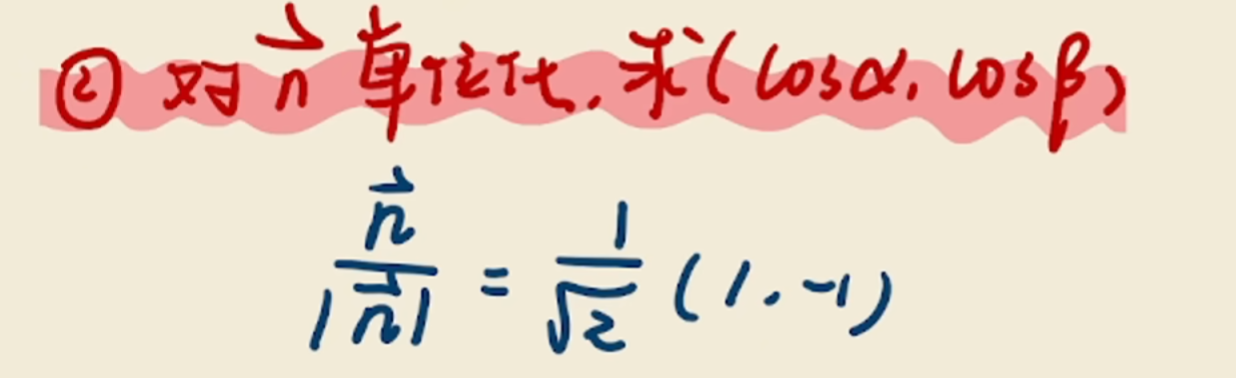 ② 对 \vec{n} 单位化, 求(cosα, cosβ)
\frac{\vec{n}}{|\vec{n}|} = \frac{1}{\sqrt{2}} (1, -1)